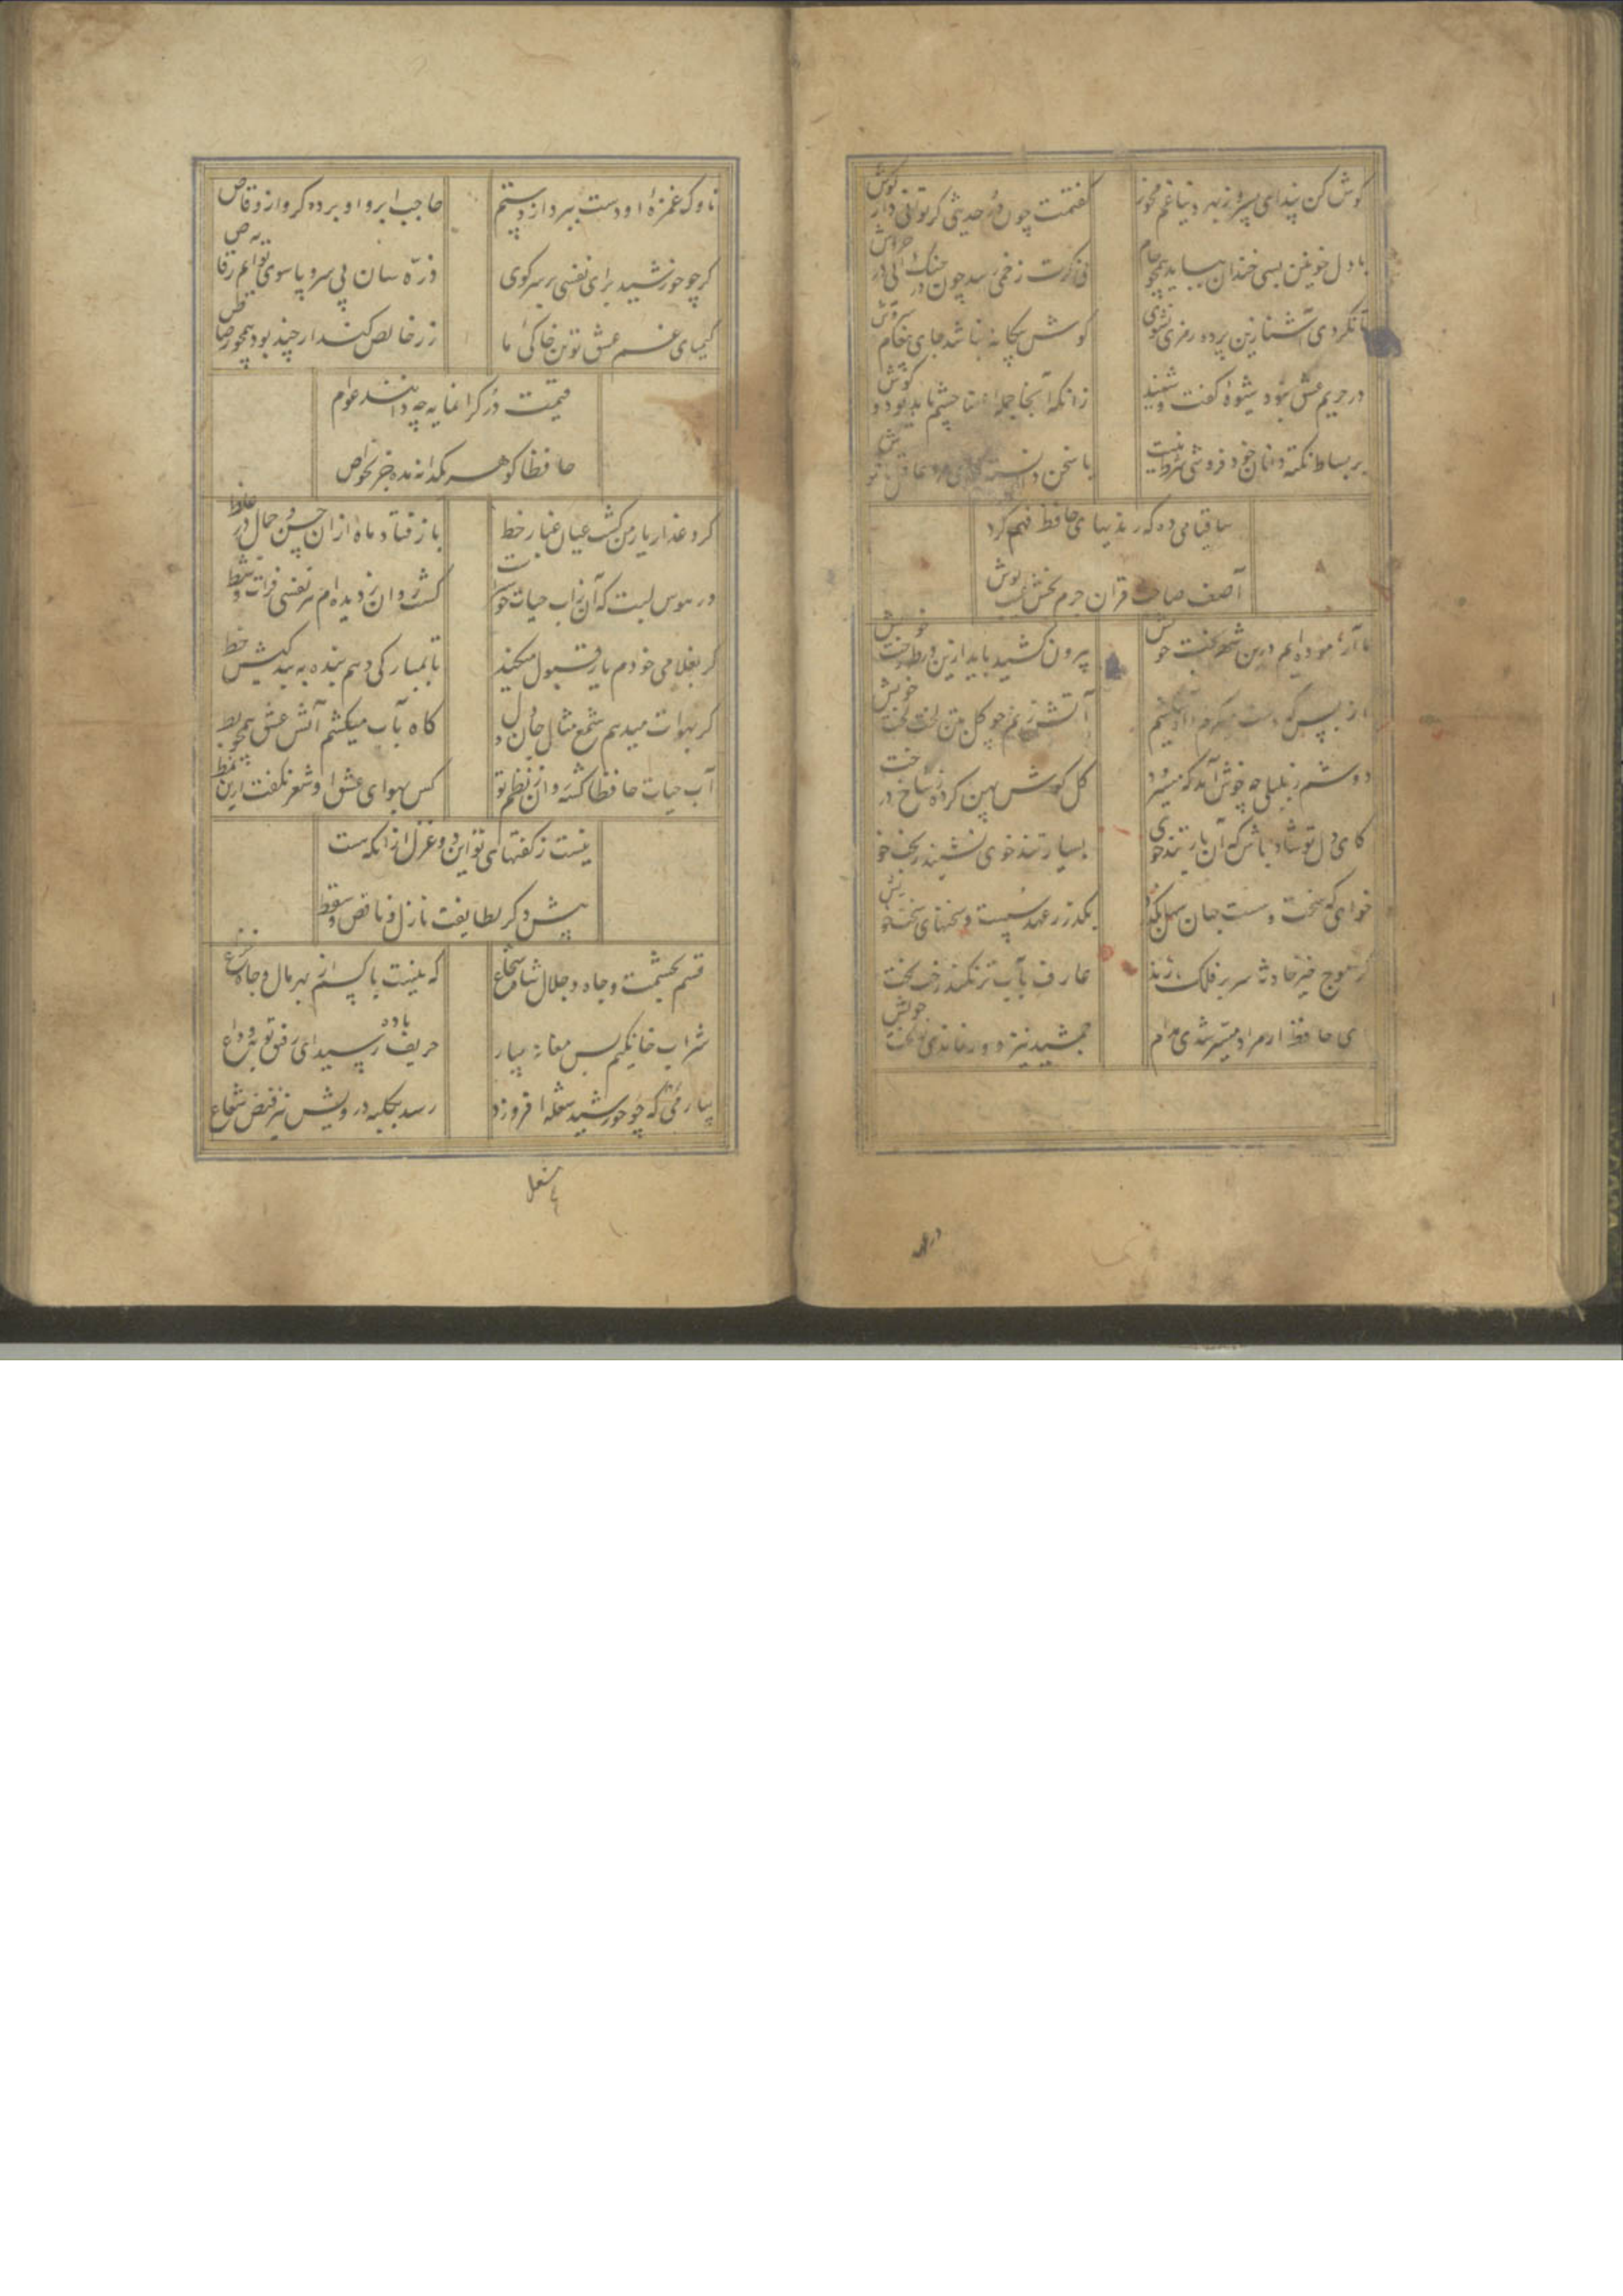 کوش کن پند ای پسر وز بهر دنیا غم مخور
کفتمت چون در حدیثی کر توانی دار کوش
با دل خونین لبی خندان بباید همچو جام
نی کرت زخمی رسد چون چنک آیی در خروش
تا نکردی آشنا زین پرده رمزی نشنوی
کوش بیکانه نباشد جای پیغام سروش
در حریم عشق نبود شیوه کفت و شنید
زانکه آنجا جمله اعضا چشم باید بود و کوش
بر بساط نکته دانان خود فروشی شرط نیست
یا سخن دانسته کوی مرد عاقل یا
ساقیا می ده که رندیهای حافظ فهم کرد
آصف صاحب قران جرم بخش عیب پوش
ما آزموده ایم درین شهر بخت خویش
بیرون کشید باید ازین ورطه رخت خویش
از بس که دست میکزم و آه میکشم
آتش زدم چو کل بتن لخت لخت خویش
دوشم ز بلبلی چه خوش آمد که میسرود
کل کوش پهن کرده ز شاخ درخت خویش
کای دل تو شاد باش که آن یار تندخوی
بسیار تندخوی نشیند ز بخت خویش
خواهی که سخت و سست جهان سهل بکذرد
بکذر ز عهد سست و سخنهای سخت خویش
کر موج خیز حادثه سر بر فلک زند
عارف بآب تر نکند رخت بخت خویش
ای حافظ ار مراد میسر شدی مدام
جمشید نیز دور نماندی ز تخت خویش
ناوک غمزه او دست ببرد از رستم
حاجب ابرو او برده کرو از وقاص
کر چو خورشید برای نفسی بر سر کوی
ذره سان بی سر و پا سوی تو آیم رقاص
کیمیای غم عشق تو تن خاکی ما
زر خالص کند ار چند بود همچو رصاص
قیمت در کرانمایه چه دانند عوام
حافظا کوهر یکدانه مده جز بخواص
کرد عذار یار من کشت عیان غبار خط
باز فتاد ماه ازان حسن و جمال در غلط
در هوس لبت که آن ز آب حیات خوشتر است
کشت روان ز دیده ام هر نفسی فرات و شط
کر بغلامی خودم یار قبول میکند
تا بمبارکی دهم بنده به بندکیش خط
کر بهوات میدهم شمع مثال جان و دل
کاه بآب میکشم آتش عشق همچو بط
آب حیات حافظا کشته روان ز نظم تو
کس بهوای عشق او شعر نکفت ازین نمط
نیست ز کفتهای تو این دو غزل از آنکه هست
پیش دکر لطایفت نازل و ناقص و سقط
قسم بحشمت و جاه و جلال شاه شجاع
که نیست با کسم از بهر مال و جاه نزاع
شراب خانکیم بس می مغانه بیار
حریف باده رسید ای رفیق توبه وداع
بیار می که چو خورشید شعله افروزد
رسد بکلبه درویش نیز فیض شعاع